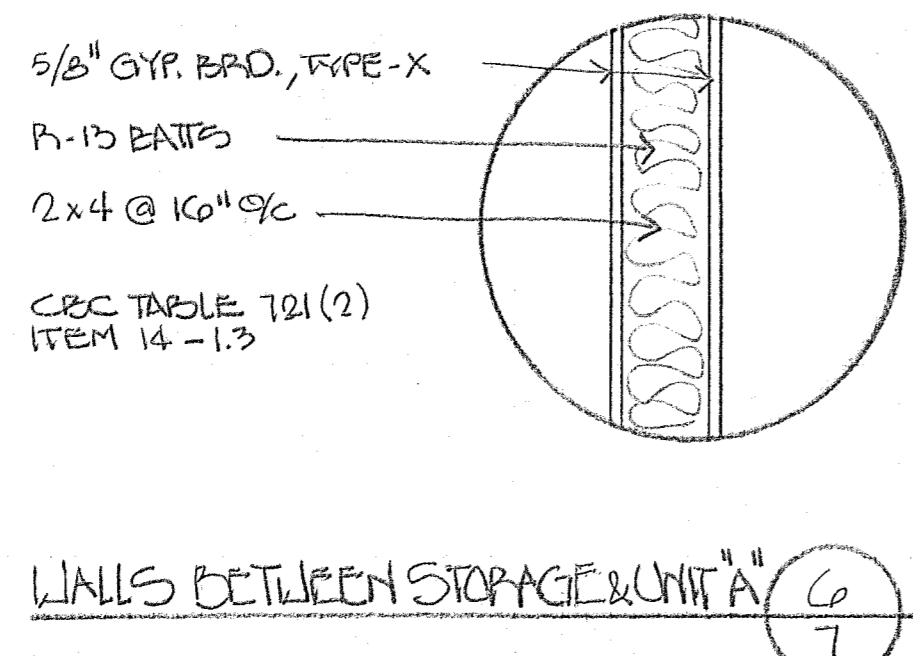 5/8" GYP. BRD., TYPE-X
R-13 BATTS
2x4 @ 16" O/C
CBC TABLE 721(2)
ITEM 14-1.3
WALLS BETWEEN STORAGE & UNIT "A"
6
7